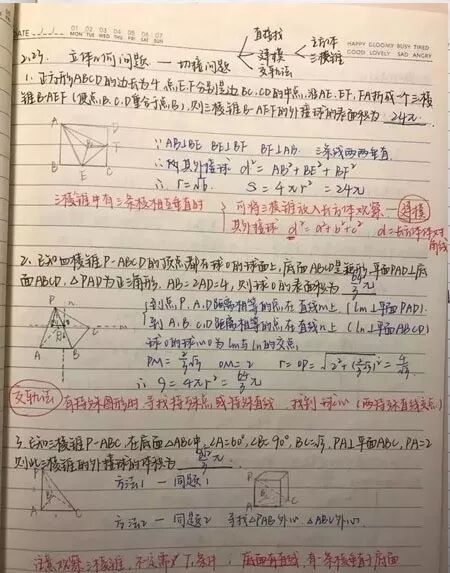 DATE 01 02 03 04 05 06 07
MON TUE WED THU FRI SAT SUN
HAPPY GLOOMY BUSY TIRED
GOOD LOVELY SAD ANGRY
2.23. 立体几何问题 — 切接问题
直接找
建模
交轨法
长方体
三棱锥
1. 正方形ABCD的边长为4,点E.F分别是边BC.CD的中点,沿AE.EF.FA折成一个三棱
锥B-AEF(使点B.C.D重合于点B),则三棱锥B-AEF的外接球的表面积为 24π
A D
F
B E C
∵AB⊥BE BE⊥BF BF⊥AB. 三条成两两垂直
∴ 其外接球 d²=AB²+BE²+BF²
∴ r=√6. S=4πr²=24π
三棱锥中有三条棱相互垂直时 可将三棱锥放入长方体观察. 建模
其外接球 d²=a²+b²+c² d=长方体体对角线
2. 已知四棱锥P-ABCD的顶点都在球O的球面上,底面ABCD是矩形,平面PAD⊥底
面ABCD, △PAD为正三角形, AB=2AD=4, 则球O的表面积为 64/3 π
到点P.A.D距离相等的点,在直线m上,(lm⊥平面PAD).
到A.B.C.D距离相等的点在直线n上 (ln⊥平面ABCD)
球O的球心O为lm与ln的交点
PM=2/3√3 OM=2 r=OP=√(2²+(2/3√3)²)=4/√3
∴ S=4πr²=64/3 π
交轨法 有特殊图形时 寻找特殊点或特殊直线 找到球心(两特殊直线交点)
3. 已知三棱锥P-ABC, 在底面△ABC中, ∠A=60°, ∠B=90°, BC=√3, PA⊥平面ABC, PA=2
则此三棱锥的外接球的体积为
方法1 — 同题1
方法2 — 同题2 寻找△PAB外心. △ABC外心.
注意观察三棱锥, 底面有直线, 有一条棱垂直于底面